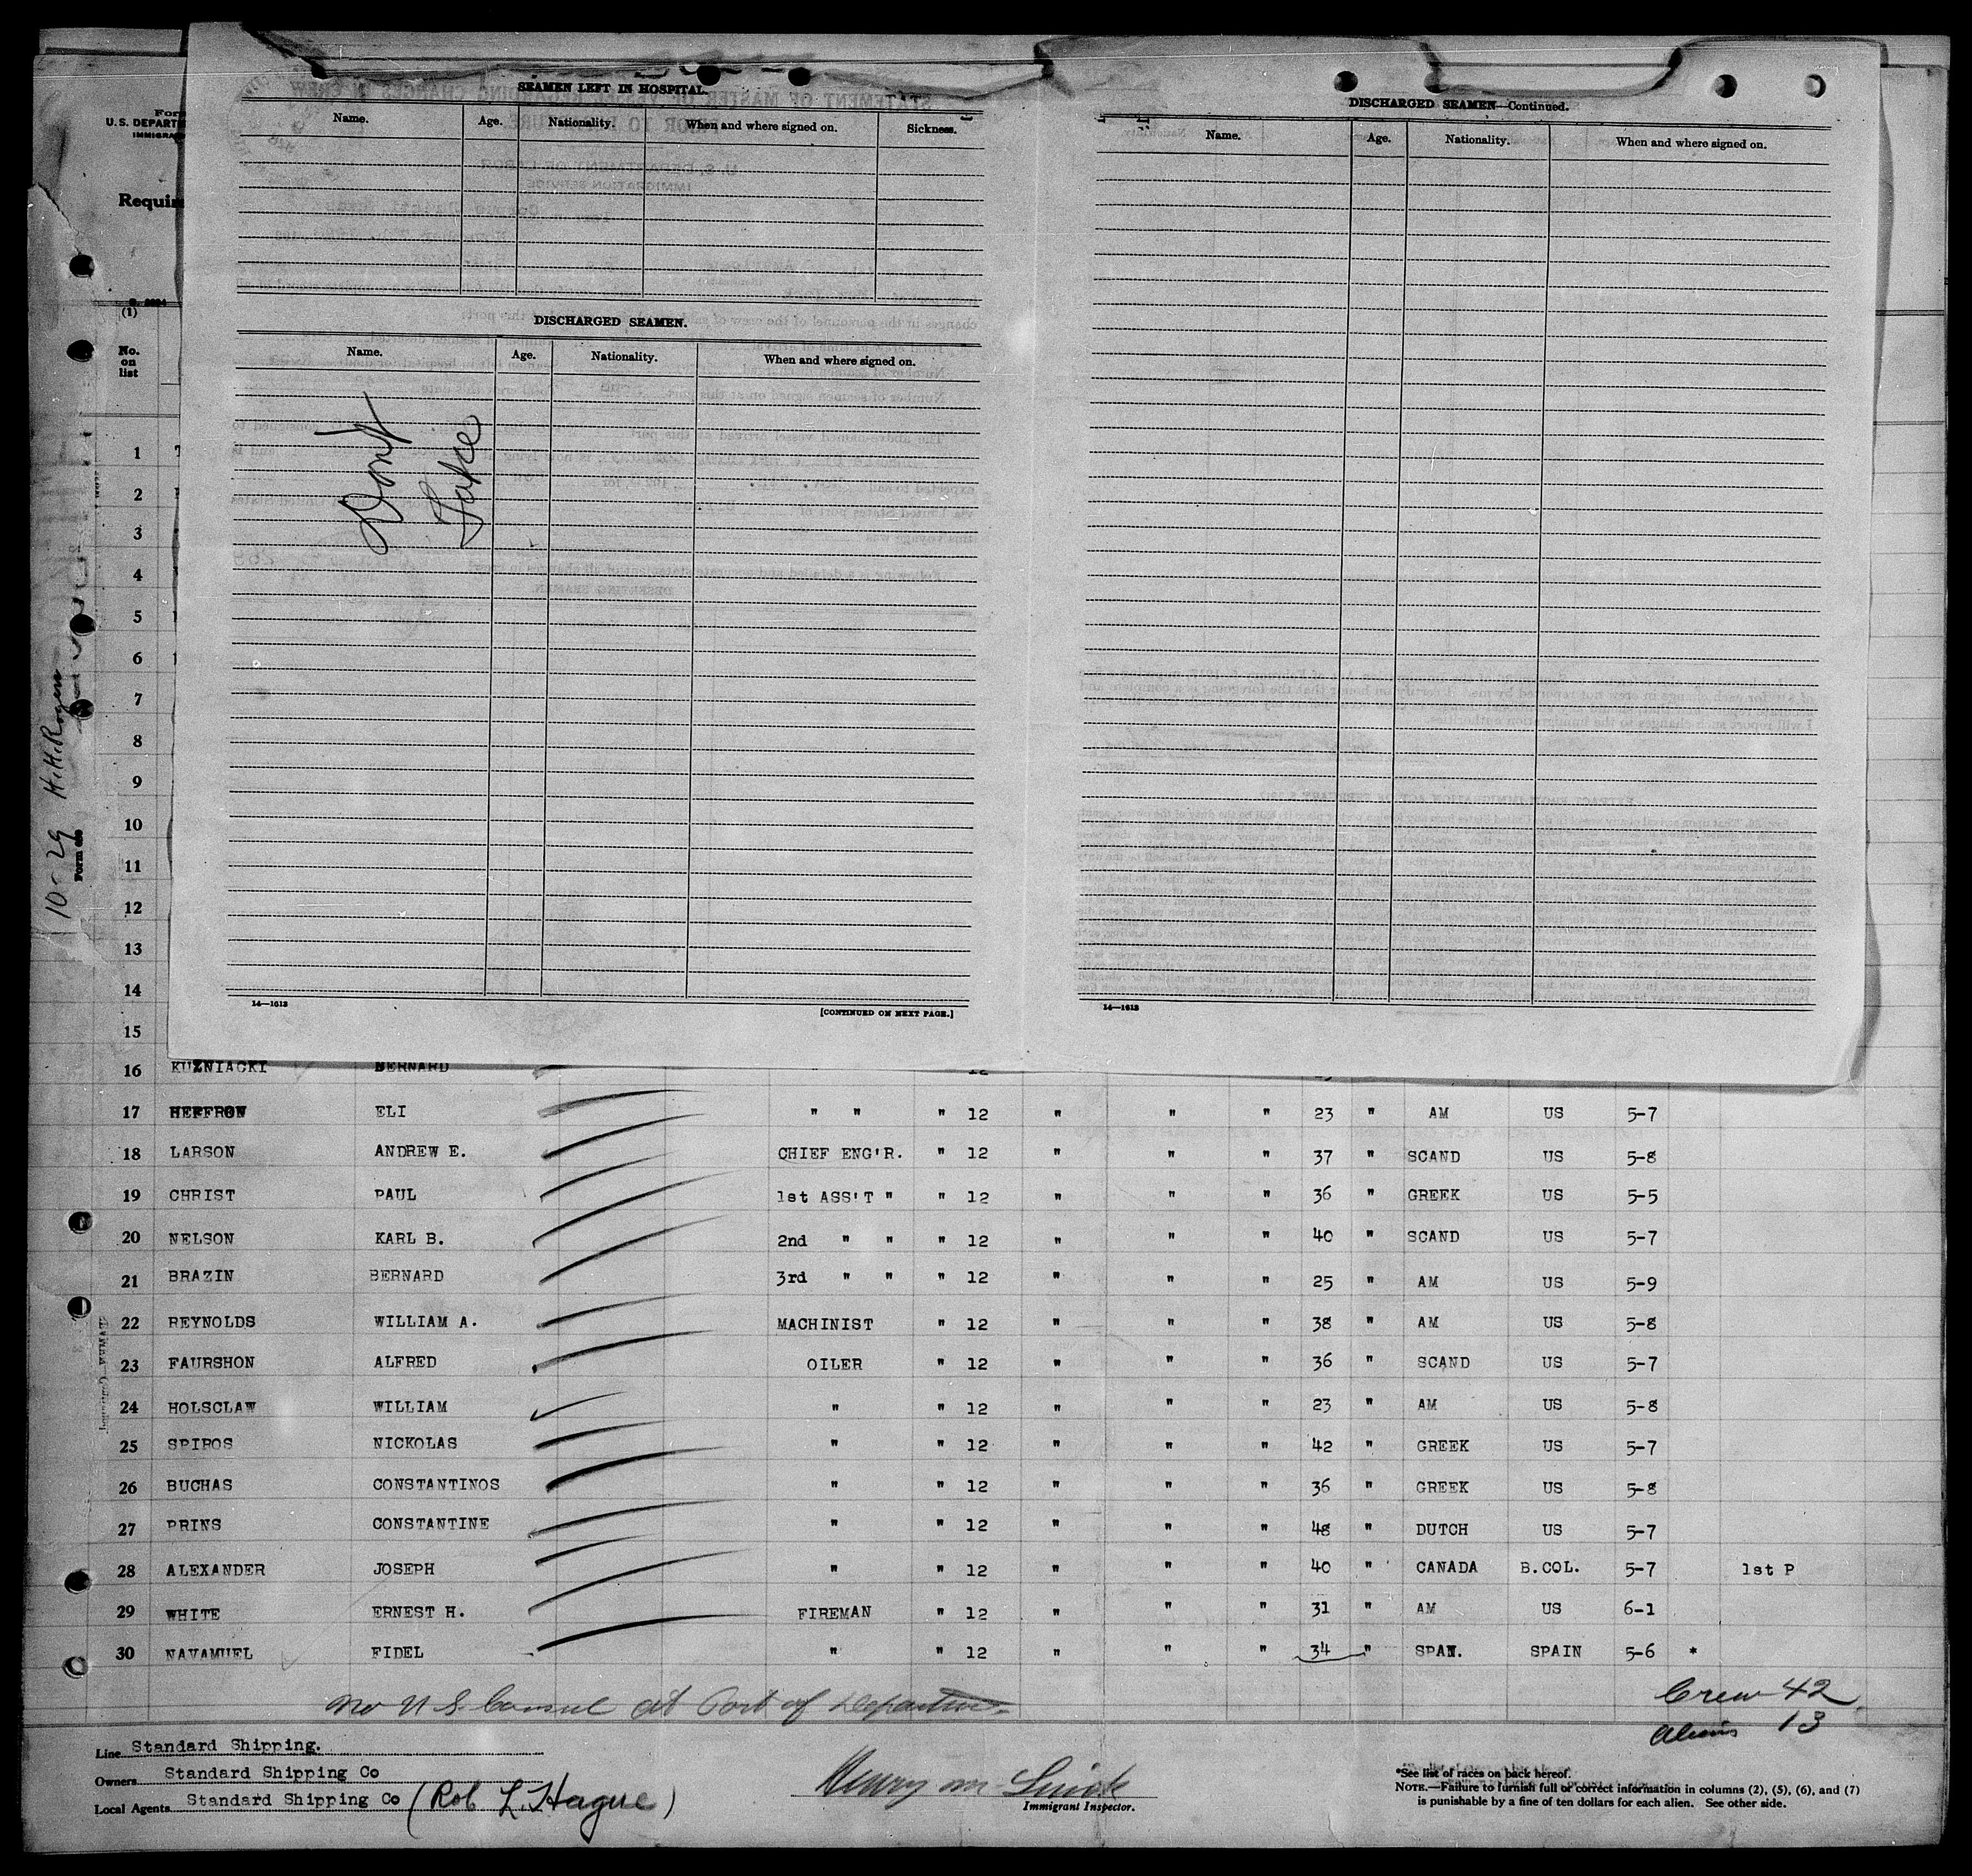 SEAMEN LEFT IN HOSPITAL.
Name. Age. Nationality. When and where signed on. Sickness.
DISCHARGED SEAMEN.
Name. Age. Nationality. When and where signed on.
Dont
Take
14—1613
[CONTINUED ON NEXT PAGE.]
DISCHARGED SEAMEN—Continued.
Name. Age. Nationality. When and where signed on.
14—1613
U.S. DEPARTM
IMMIGRA
Requir
(1)
No.
on
list
1
2
3
4
5
6
7
8
9
10
11
12
13
14
15
10-29 H.H. Rogers
16 KUZNIACKI BERNARD
17 HEFFRON ELI " " " 12 " " " 23 " AM US 5-7
18 LARSON ANDREW E. CHIEF ENG'R. " 12 " " " 37 " SCAND US 5-8
19 CHRIST PAUL 1st ASS'T " " 12 " " " 36 " GREEK US 5-5
20 NELSON KARL B. 2nd " " " 12 " " " 40 " SCAND US 5-7
21 BRAZIN BERNARD 3rd " " " 12 " " " 25 " AM US 5-9
22 REYNOLDS WILLIAM A. MACHINIST " 12 " " " 38 " AM US 5-8
23 FAURSHON ALFRED OILER " 12 " " " 36 " SCAND US 5-7
24 HOLSCLAW WILLIAM " " 12 " " " 23 " AM US 5-8
25 SPIROS NICKOLAS " " 12 " " " 42 " GREEK US 5-7
26 BUCHAS CONSTANTINOS " " 12 " " " 36 " GREEK US 5-8
27 PRINS CONSTANTINE " " 12 " " " 48 " DUTCH US 5-7
28 ALEXANDER JOSEPH " " 12 " " " 40 " CANADA B.COL. 5-7 1st P
29 WHITE ERNEST H. FIREMAN " 12 " " " 31 " AM US 6-1
30 NAVAMUEL FIDEL " " 12 " " " 34 " SPAN. SPAIN 5-6 *
No U S Consul at Port of Departure
Crew 42
Aliens 13
Line Standard Shipping.
Owners Standard Shipping Co
Local Agents Standard Shipping Co (Rob L. Hague)
Immigrant Inspector.
*See list of races on back hereof.
NOTE.—Failure to furnish full or correct information in columns (2), (5), (6), and (7)
is punishable by a fine of ten dollars for each alien. See other side.